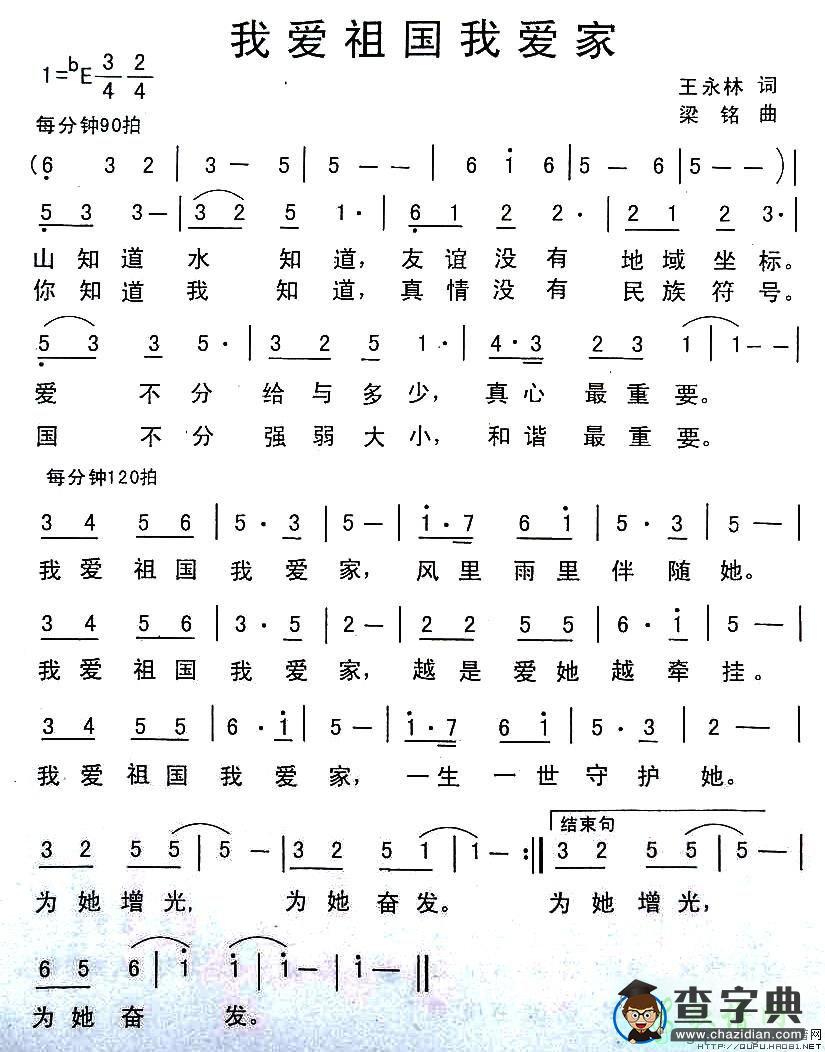 我爱祖国我爱家
1=bE 3/4 2/4
王永林 词
每分钟90拍
梁铭 曲
(6 3 2 | 3 — 5 | 5 — — | 6 i 6 | 5 — 6 | 5 — — ) |
5 3 3 — | 3 2 5 1· | 6 1 2 2· | 2 1 2 3· |
山知道水 知道,友谊没有 地域坐标。
你知道我 知道,真情没有 民族符号。
5 3 3 5· | 3 2 5 1· | 4·3 2 3 1 | 1 — — |
爱 不分 给与多少,真心 最重要。
国 不分 强弱大小,和谐 最重要。
每分钟120拍
3 4 5 6 | 5· 3 | 5 — | i·7 6 i | 5· 3 | 5 — |
我爱 祖国 我 爱 家, 风里 雨里 伴 随 她。
3 4 5 6 | 3· 5 | 2 — | 2 2 5 5 | 6· i | 5 — |
我爱 祖国 我 爱 家, 越是 爱她 越 牵 挂。
3 4 5 5 | 6· i | 5 — | i·7 6 i | 5· 3 | 2 — |
我爱 祖国 我 爱 家, 一生 一世 守 护 她。
结束句
3 2 5 5 | 5 — | 3 2 5 1 | 1 — :‖ 3 2 5 5 | 5 — |
为她增光, 为她奋发。 为她增光,
6 5 6 i | i i | i — ‖
为她奋 发。
查字典
www.chazidian.com
HTTP://QUPU.HAO81.NET